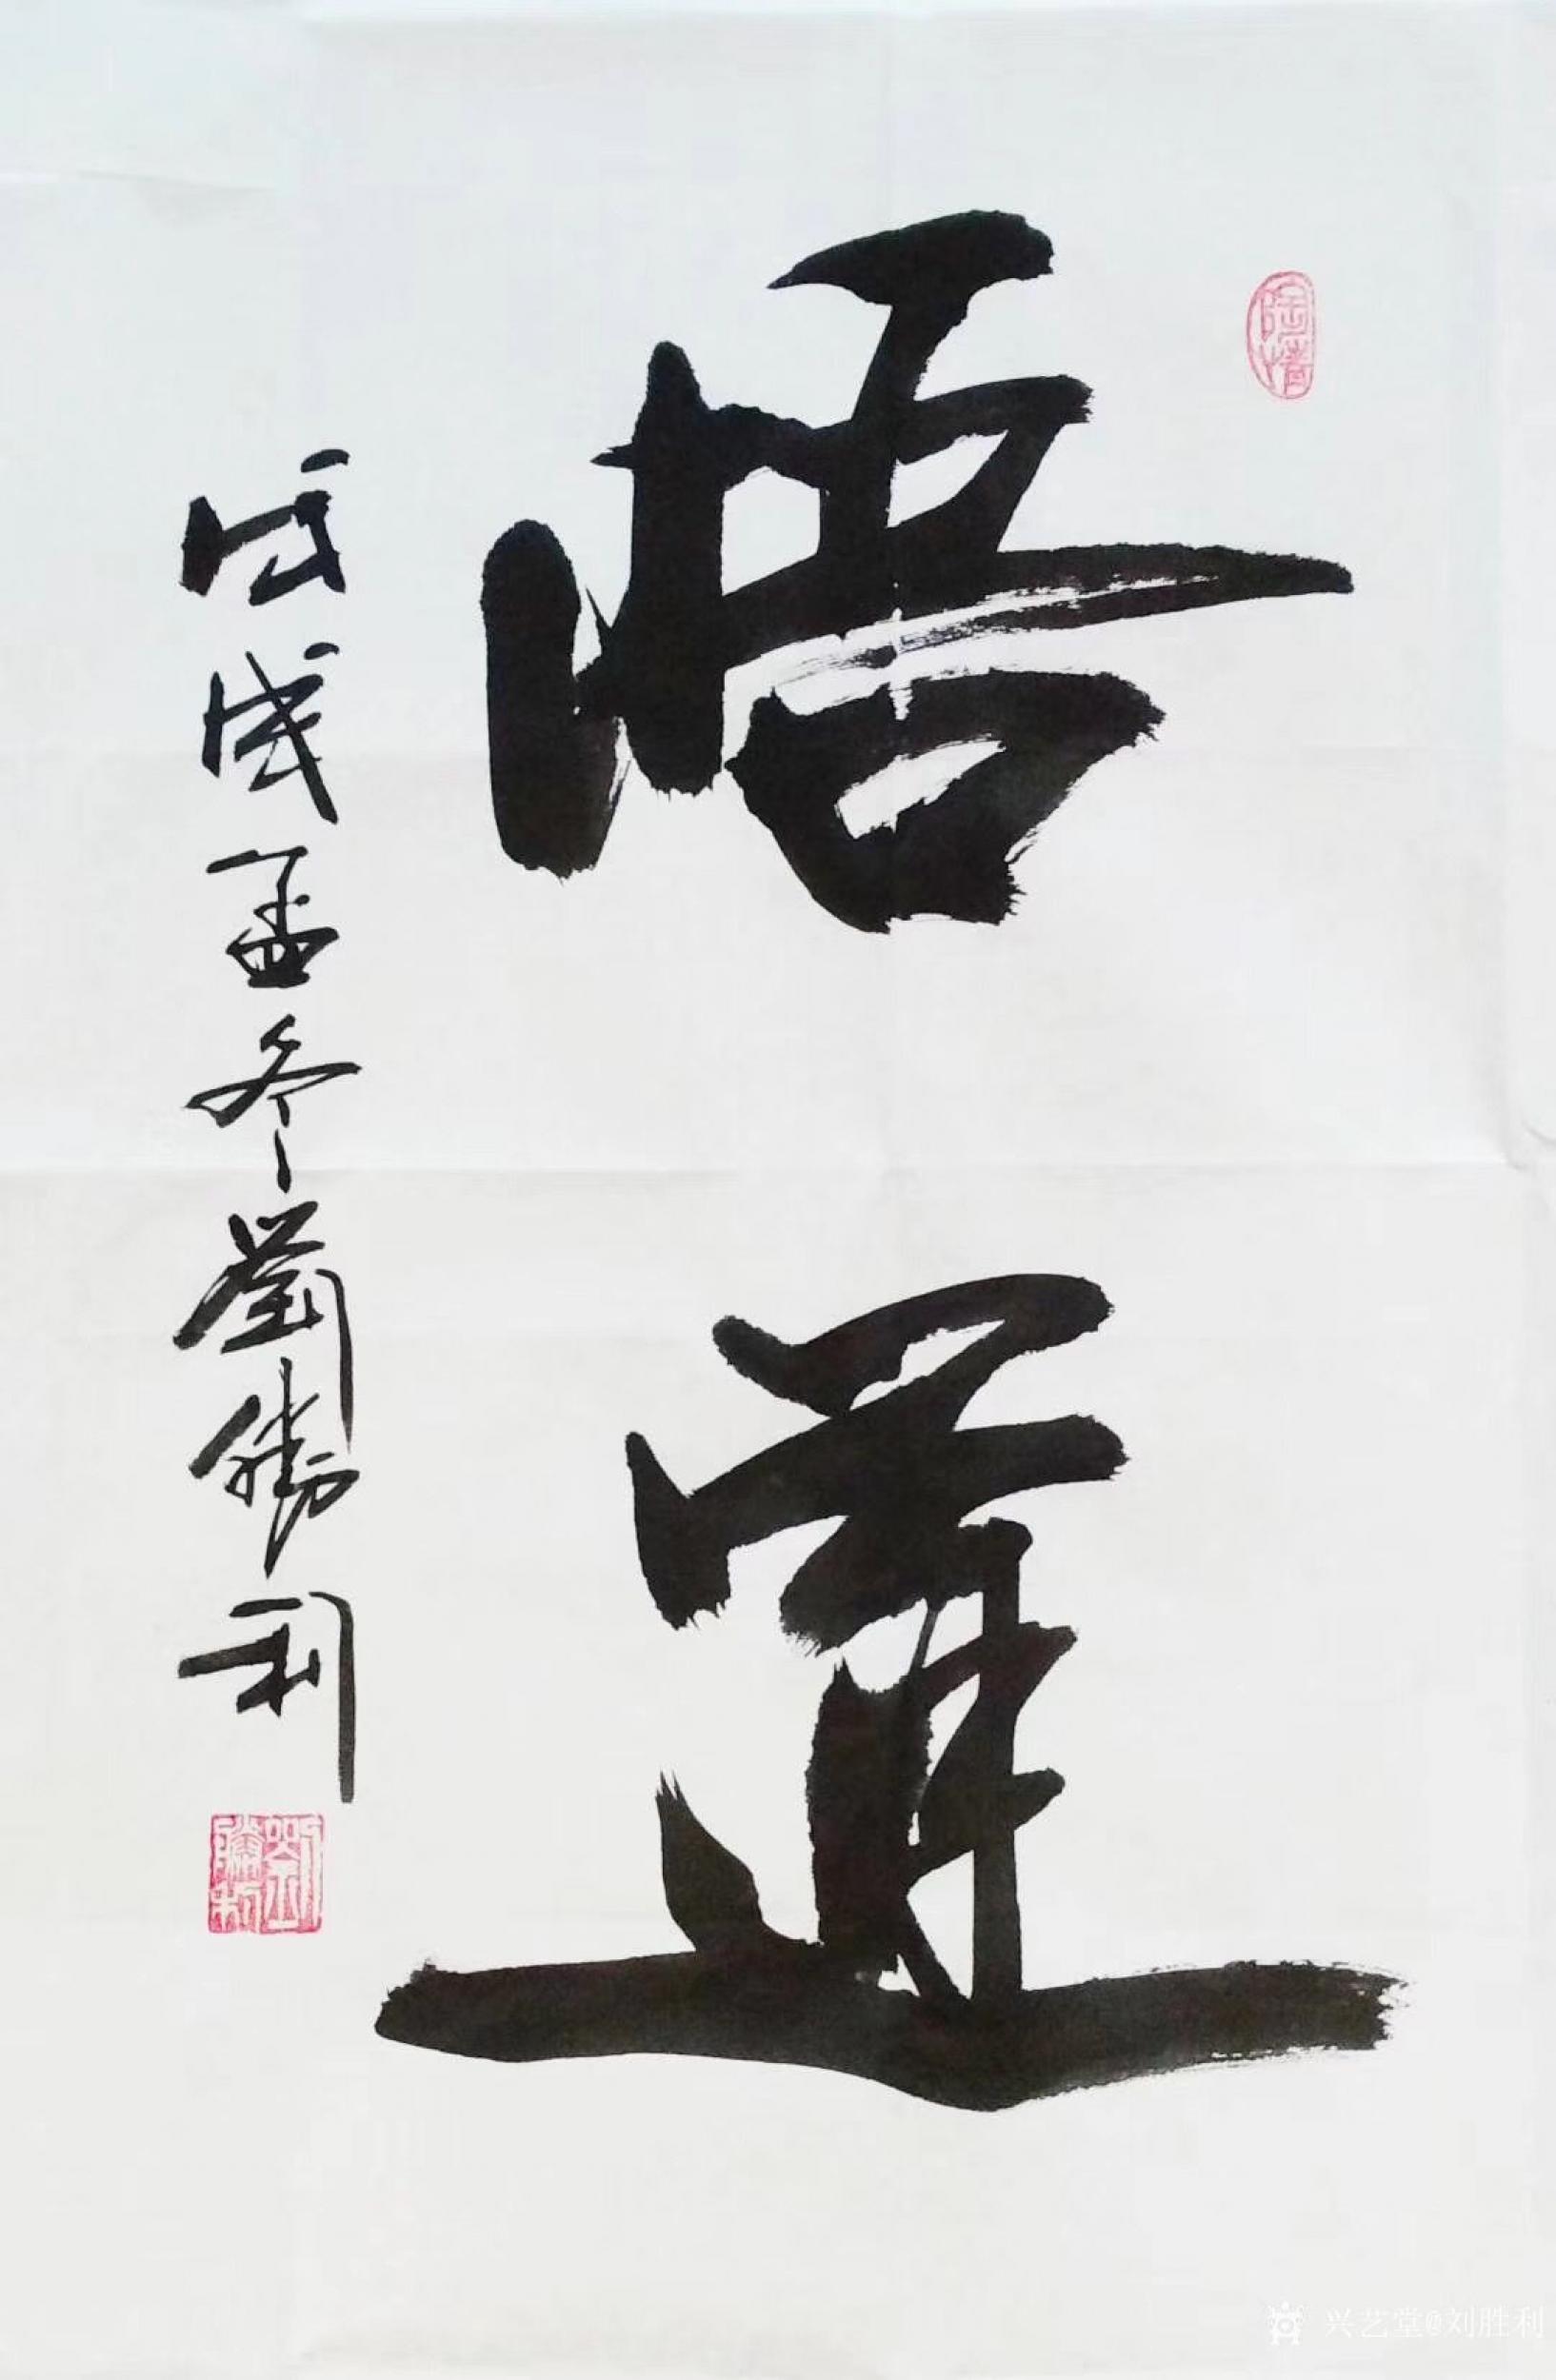 陶情
悟道
戊戌孟冬劉勝利
劉勝利
兴艺堂@刘胜利